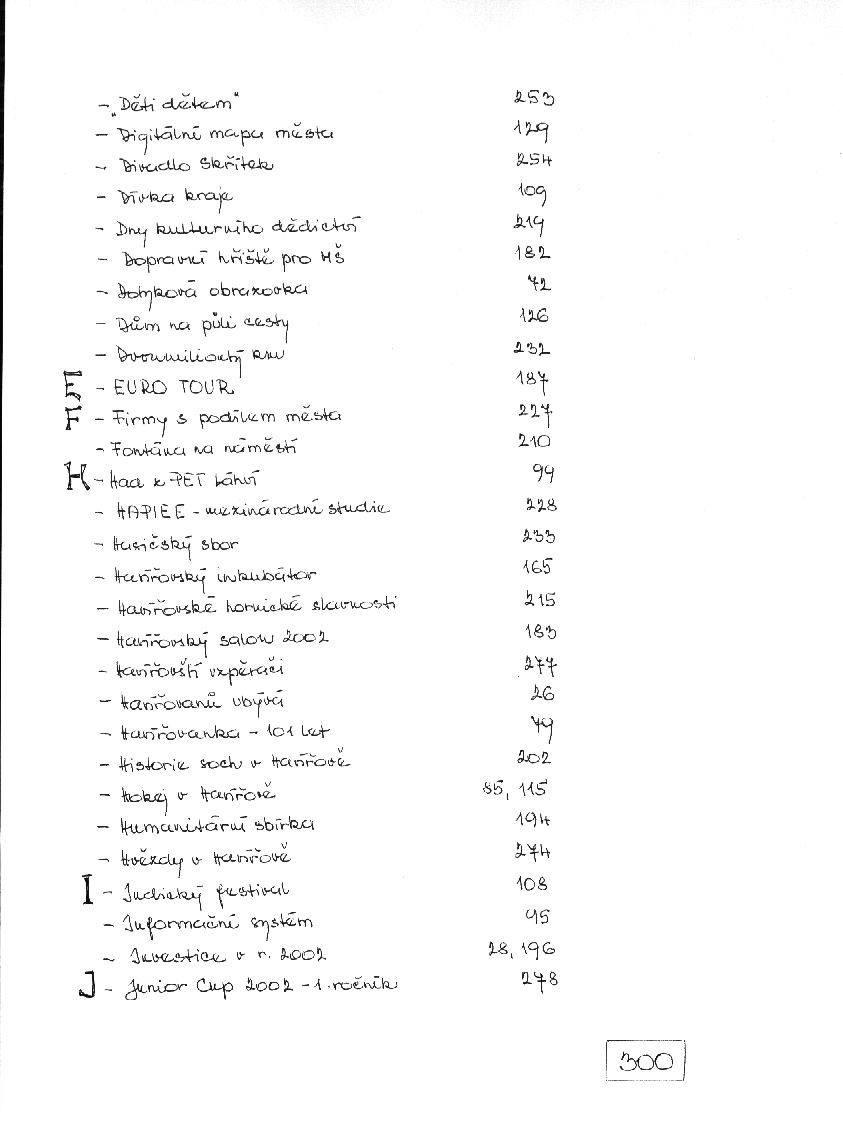 - „Děti dětem" 253
- Digitální mapa města 129
- Divadlo Skřítek 254
- Dívka kraje 109
- Dny kulturního dědictví 219
- Dopravní hřiště pro MŠ 182
- Dotyková obrazovka 72
- Dům na půli cesty 126
- Dvoumiliontý km 232
E - EURO TOUR 187
F - Firmy s podílem města 227
- Fontána na náměstí 210
H - Haa z PET láhví 99
- HAPIEE - mezinárodní studie 228
- Hasičský sbor 233
- Havířovský inkubátor 165
- Havířovské hornické slavnosti 215
- Havířovský salon 2002 183
- Havířovští vzpěrači 277
- Havířovanů ubývá 26
- Havířovanka - 101 let 79
- Historie soch v Havířově 202
- Hokej v Havířově 85, 115
- Humanitární sbírka 194
- Hvězdy v Havířově 274
I - Indický festival 108
- Informační systém 95
- Investice v r. 2002 28, 196
J - Junior Cup 2002 - 1. ročník 278
300